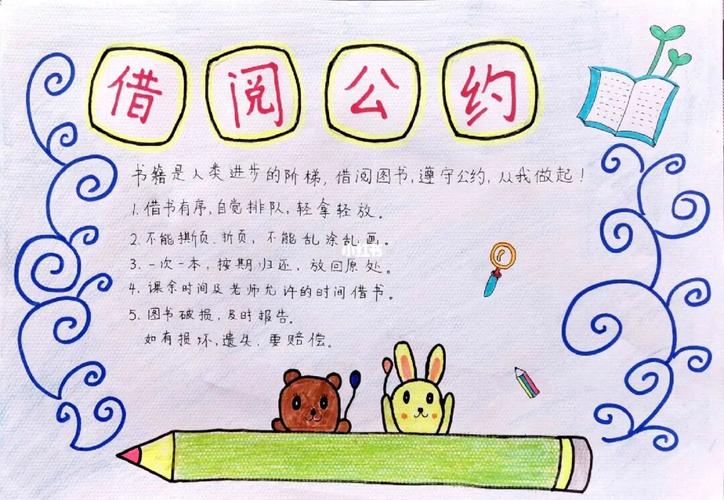 借阅公约
书籍是人类进步的阶梯，借阅图书，遵守公约，从我做起！
1. 借书有序，自觉排队，轻拿轻放。
2. 不能撕页、折页，不能乱涂乱画。
3. 一次一本，按期归还，放回原处。
4. 课余时间及老师允许的时间借书。
5. 图书破损，及时报告。
如有损坏，遗失，要赔偿。
小红书